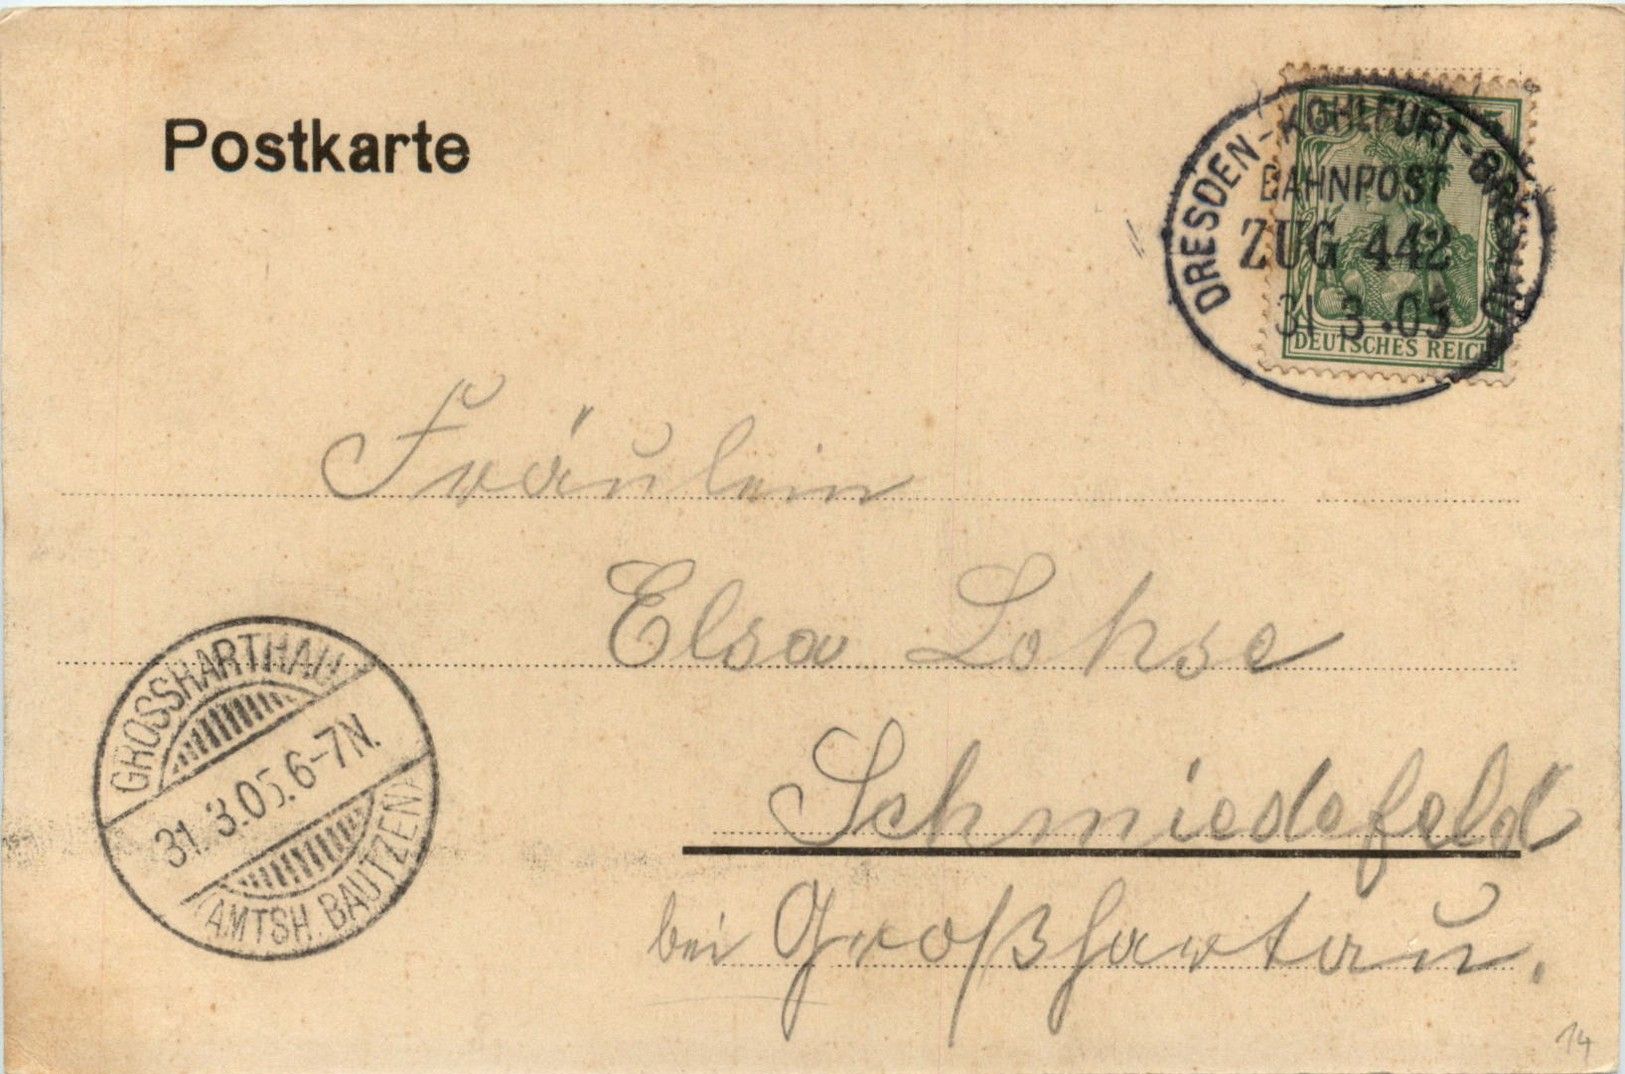 Postkarte
DRESDEN-KOHLFURT-BRESLAU
BAHNPOST
ZUG 442
31 3 • 05
5
DEUTSCHES REICH
Fräulein
Elsa Lohse
Schmiedefeld
bei Großhartau.
GROSSHARTHAU
31. 3.05. 6-7N.
(AMTSH. BAUTZEN)
14